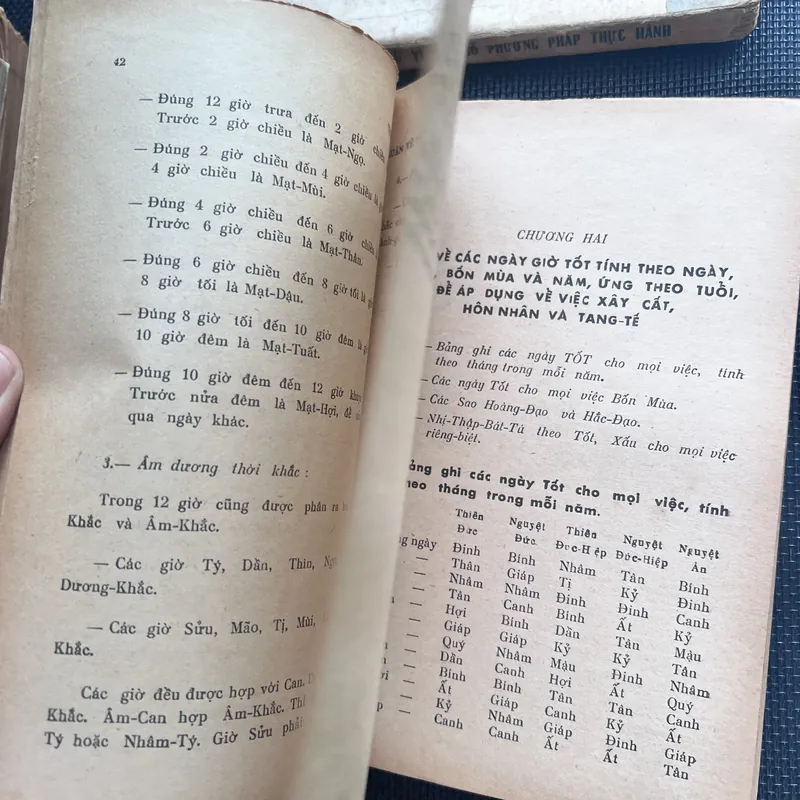 PHƯƠNG PHÁP THỰC HÀNH
42
— Đúng 12 giờ trưa đến 2 giờ
Trước 2 giờ chiều là Mạt-Ngọ.
— Đúng 2 giờ chiều đến 4 giờ chiều là
4 giờ chiều là Mạt-Mùi.
— Đúng 4 giờ chiều đến 6 giờ chiều
Trước 6 giờ chiều là Mạt-Thân.
— Đúng 6 giờ chiều đến 8 giờ tối là
8 giờ tối là Mạt-Dậu.
— Đúng 8 giờ tối đến 10 giờ đêm là
10 giờ đêm là Mạt-Tuất.
— Đúng 10 giờ đêm đến 12 giờ
Trước nửa đêm là Mạt-Hợi, để
qua ngày khác.
3.— Âm dương thời khắc :
Trong 12 giờ cũng được phân ra
Khắc và Âm-Khắc.
— Các giờ Tý, Dần, Thìn,
Dương-Khắc.
— Các giờ Sửu, Mão, Tị, Mùi,
Khắc.
Các giờ đều được hợp với Can.
Khắc. Âm-Can hợp Âm-Khắc.
Tý hoặc Nhâm-Tý. Giờ Sửu phải
CHƯƠNG HAI
VỀ CÁC NGÀY GIỜ TỐT TÍNH THEO NGÀY,
BỐN MÙA VÀ NĂM, ỨNG THEO TUỔI,
ĐỀ ÁP DỤNG VỀ VIỆC XÂY CẤT,
HÔN NHÂN VÀ TANG-TẾ
— Bảng ghi các ngày TỐT cho mọi việc, tính
theo tháng trong mỗi năm.
— Các ngày Tốt cho mọi việc Bốn Mùa.
— Các Sao Hoàng-Đạo và Hắc-Đạo.
— Nhị-Thập-Bát-Tú theo Tốt, Xấu cho mọi việc
riêng-biệt.
Bảng ghi các ngày Tốt cho mọi việc, tính
theo tháng trong mỗi năm.
Thiên Nguyệt Thiên Nguyệt Nguyệt
Đức Đức Đức-Hiệp Đức-Hiệp Ân
ngày Đinh Bính Nhâm Tân Bính
— Thân Giáp Tị Kỷ Đinh
— Nhâm Nhâm Đinh Đinh Canh
— Tân Canh Bính Ất Kỷ
— Hợi Bính Dần Tân Mậu
— Giáp Giáp Kỷ Kỷ Tân
— Quý Nhâm Mậu Đinh Nhâm
— Dần Canh Hợi Ất Quý
— Bính Bính Tân Tân Canh
— Ất Giáp Canh Kỷ Ất
— Kỷ Nhâm Giáp Đinh Giáp
— Canh Canh Ất Ất Tân